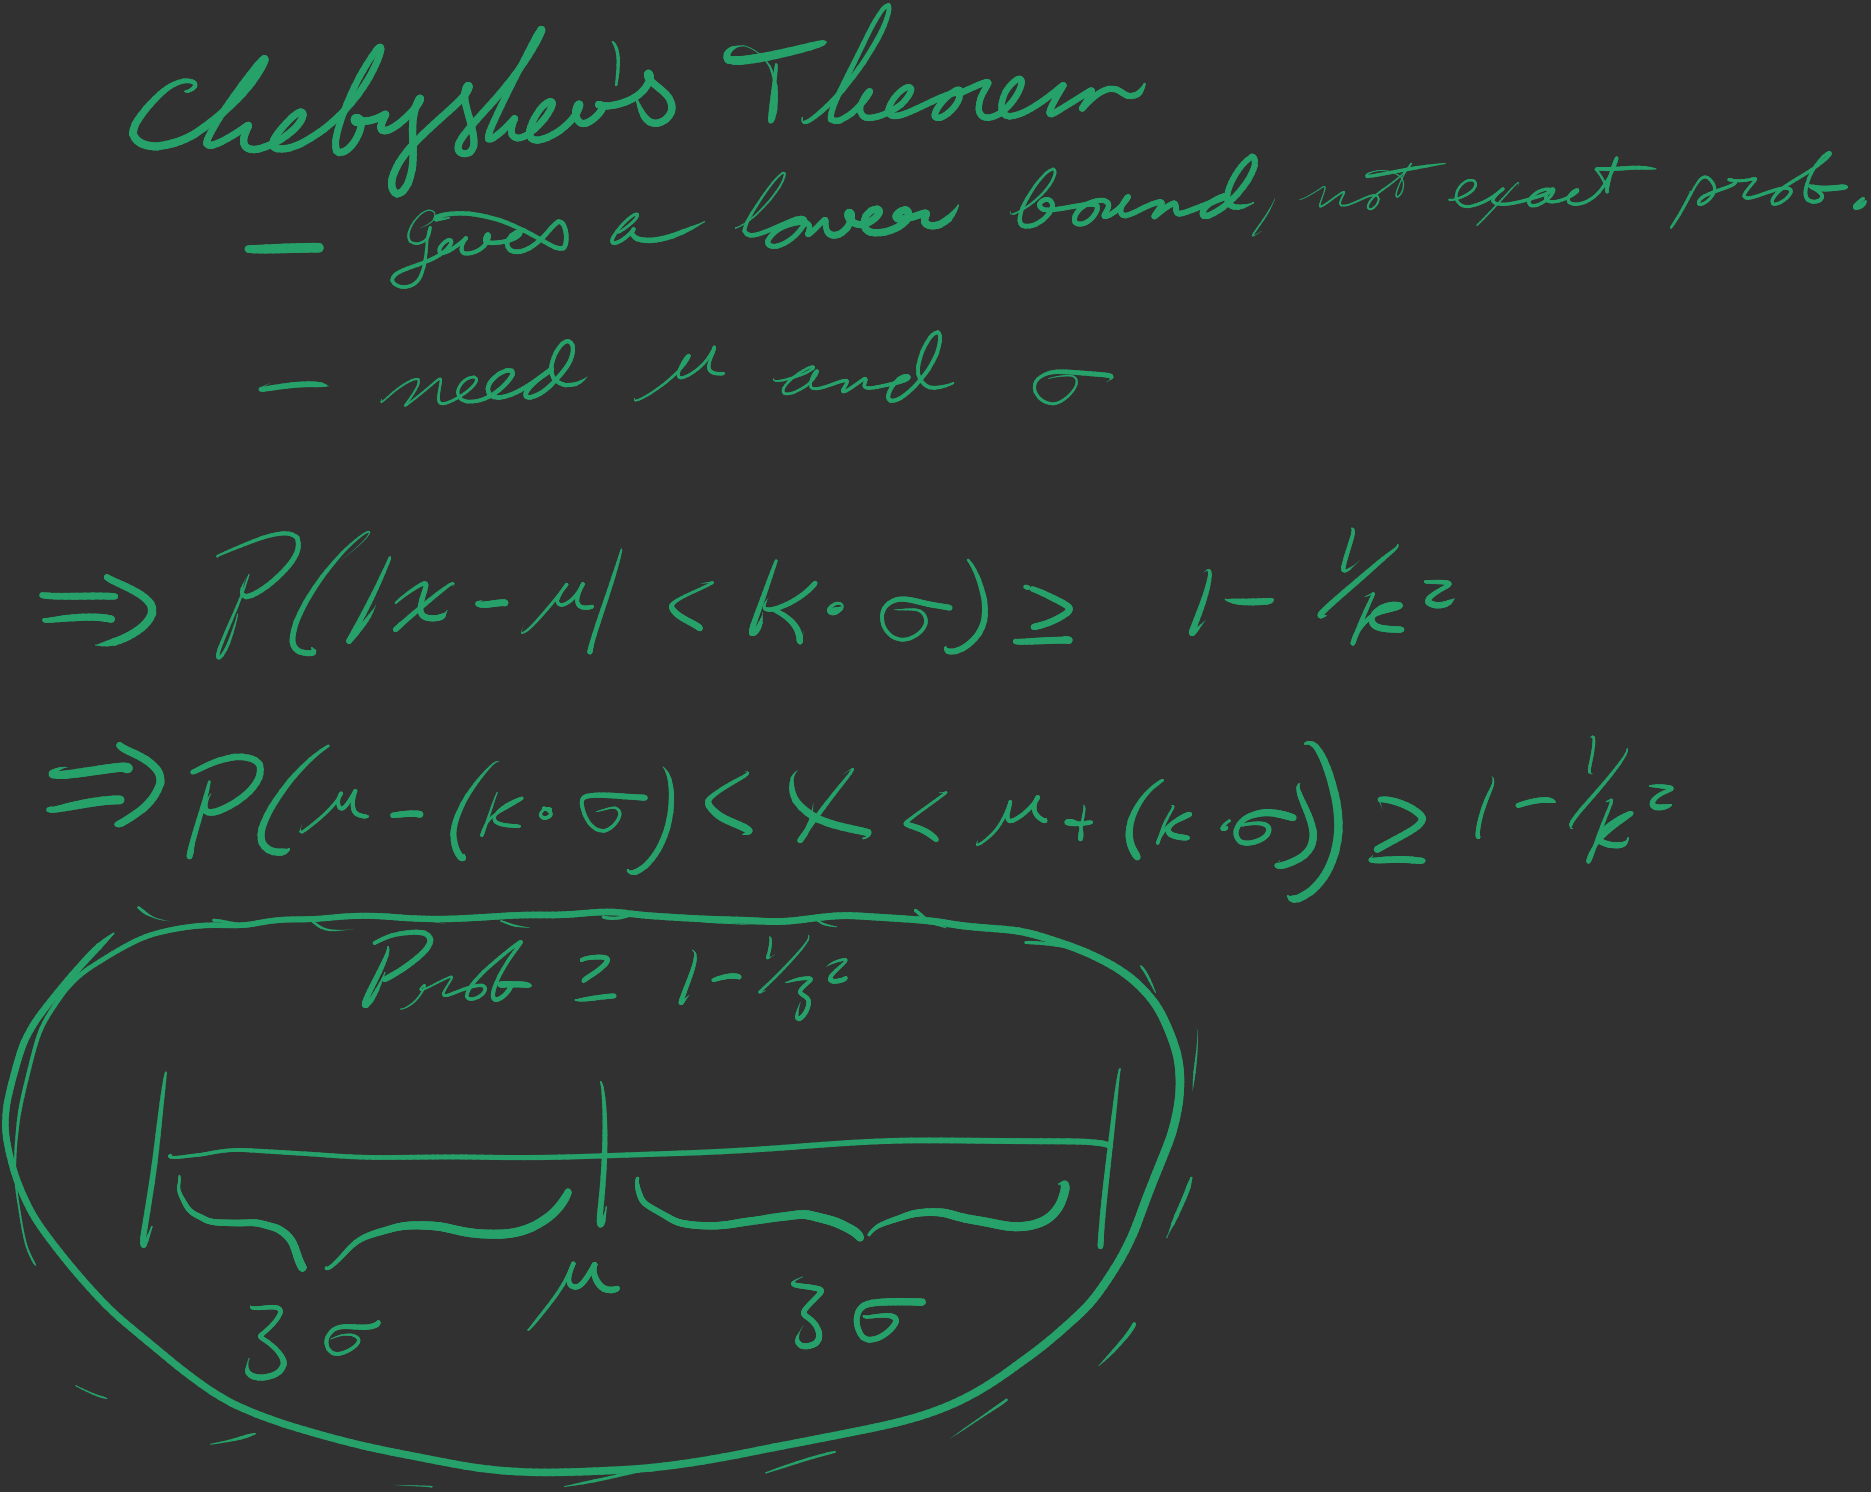 Chebyshev's Theorem
— Gives a lower bound, not exact prob.
— need μ and σ
⇒ P(|x - μ| < K·σ) ≥ 1 - 1/k²
⇒ P(μ - (k·σ) < X < μ + (k·σ)) ≥ 1 - 1/k²
Prob ≥ 1 - 1/3²
μ
3σ 3σ